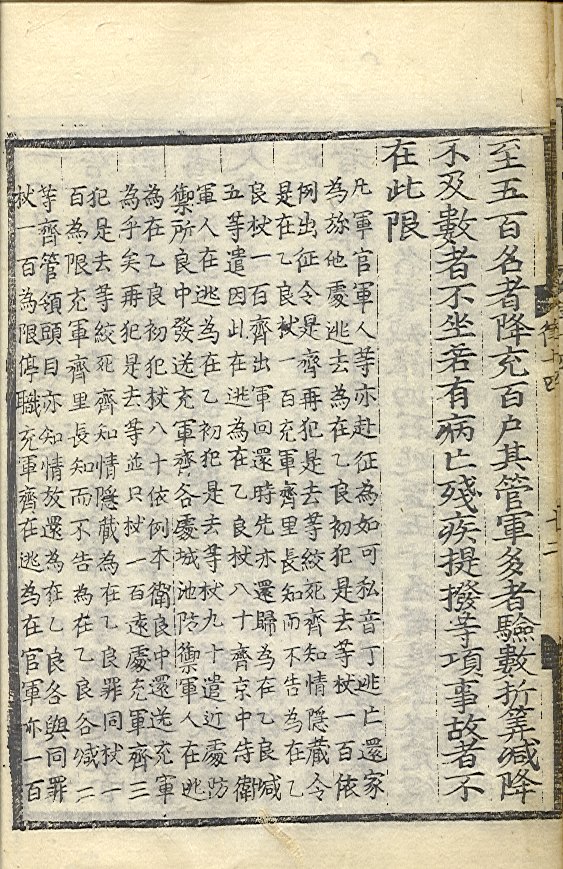 至五百名者降充百户其管軍多者驗數折筭减降
不及數者不坐若有病亡殘疾提撥等項事故者不
在此限
凡軍官軍人等亦赴征為如可私音丁逃亡還家
為旀他處逃去為在乙良初犯是去等杖一百依
例出征令是齊再犯是去等絞死齊知情隱藏令
是在乙良杖一百充軍齊里長知而不告為在乙
良杖一百齊出軍回還時先亦還歸為在乙良减
五等遣因此在逃為在乙良杖八十齊京中侍衛
軍人在逃為在乙初犯是去等杖九十遣近處防
禦所良中發送充軍齊各處城池防禦軍人在逃
為在乙良初犯杖八十依例本衛良中還送充軍
為乎矣再犯是去等並只杖一百遠處充軍齊三
犯是去等絞死齊知情隱藏為在乙良罪同杖一
百為限充軍齊里長知而不告為在乙良各减二
等齊管領頭目亦知情故還為在乙良各與同罪
杖一百為限停職充軍齊在逃為在官軍亦一百